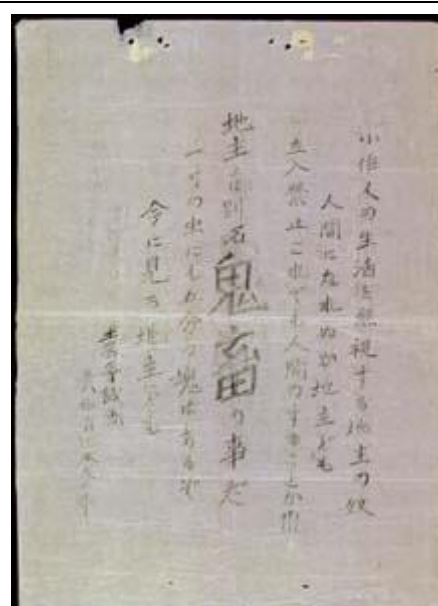 小作人の生活を無視する地主の奴
人間になれぬか地主ども
立入禁止これでも人間のすることか
地主の別名鬼畜の事だ
一寸の虫にも五分の魂はあるぞ
今に見ろ地主ども